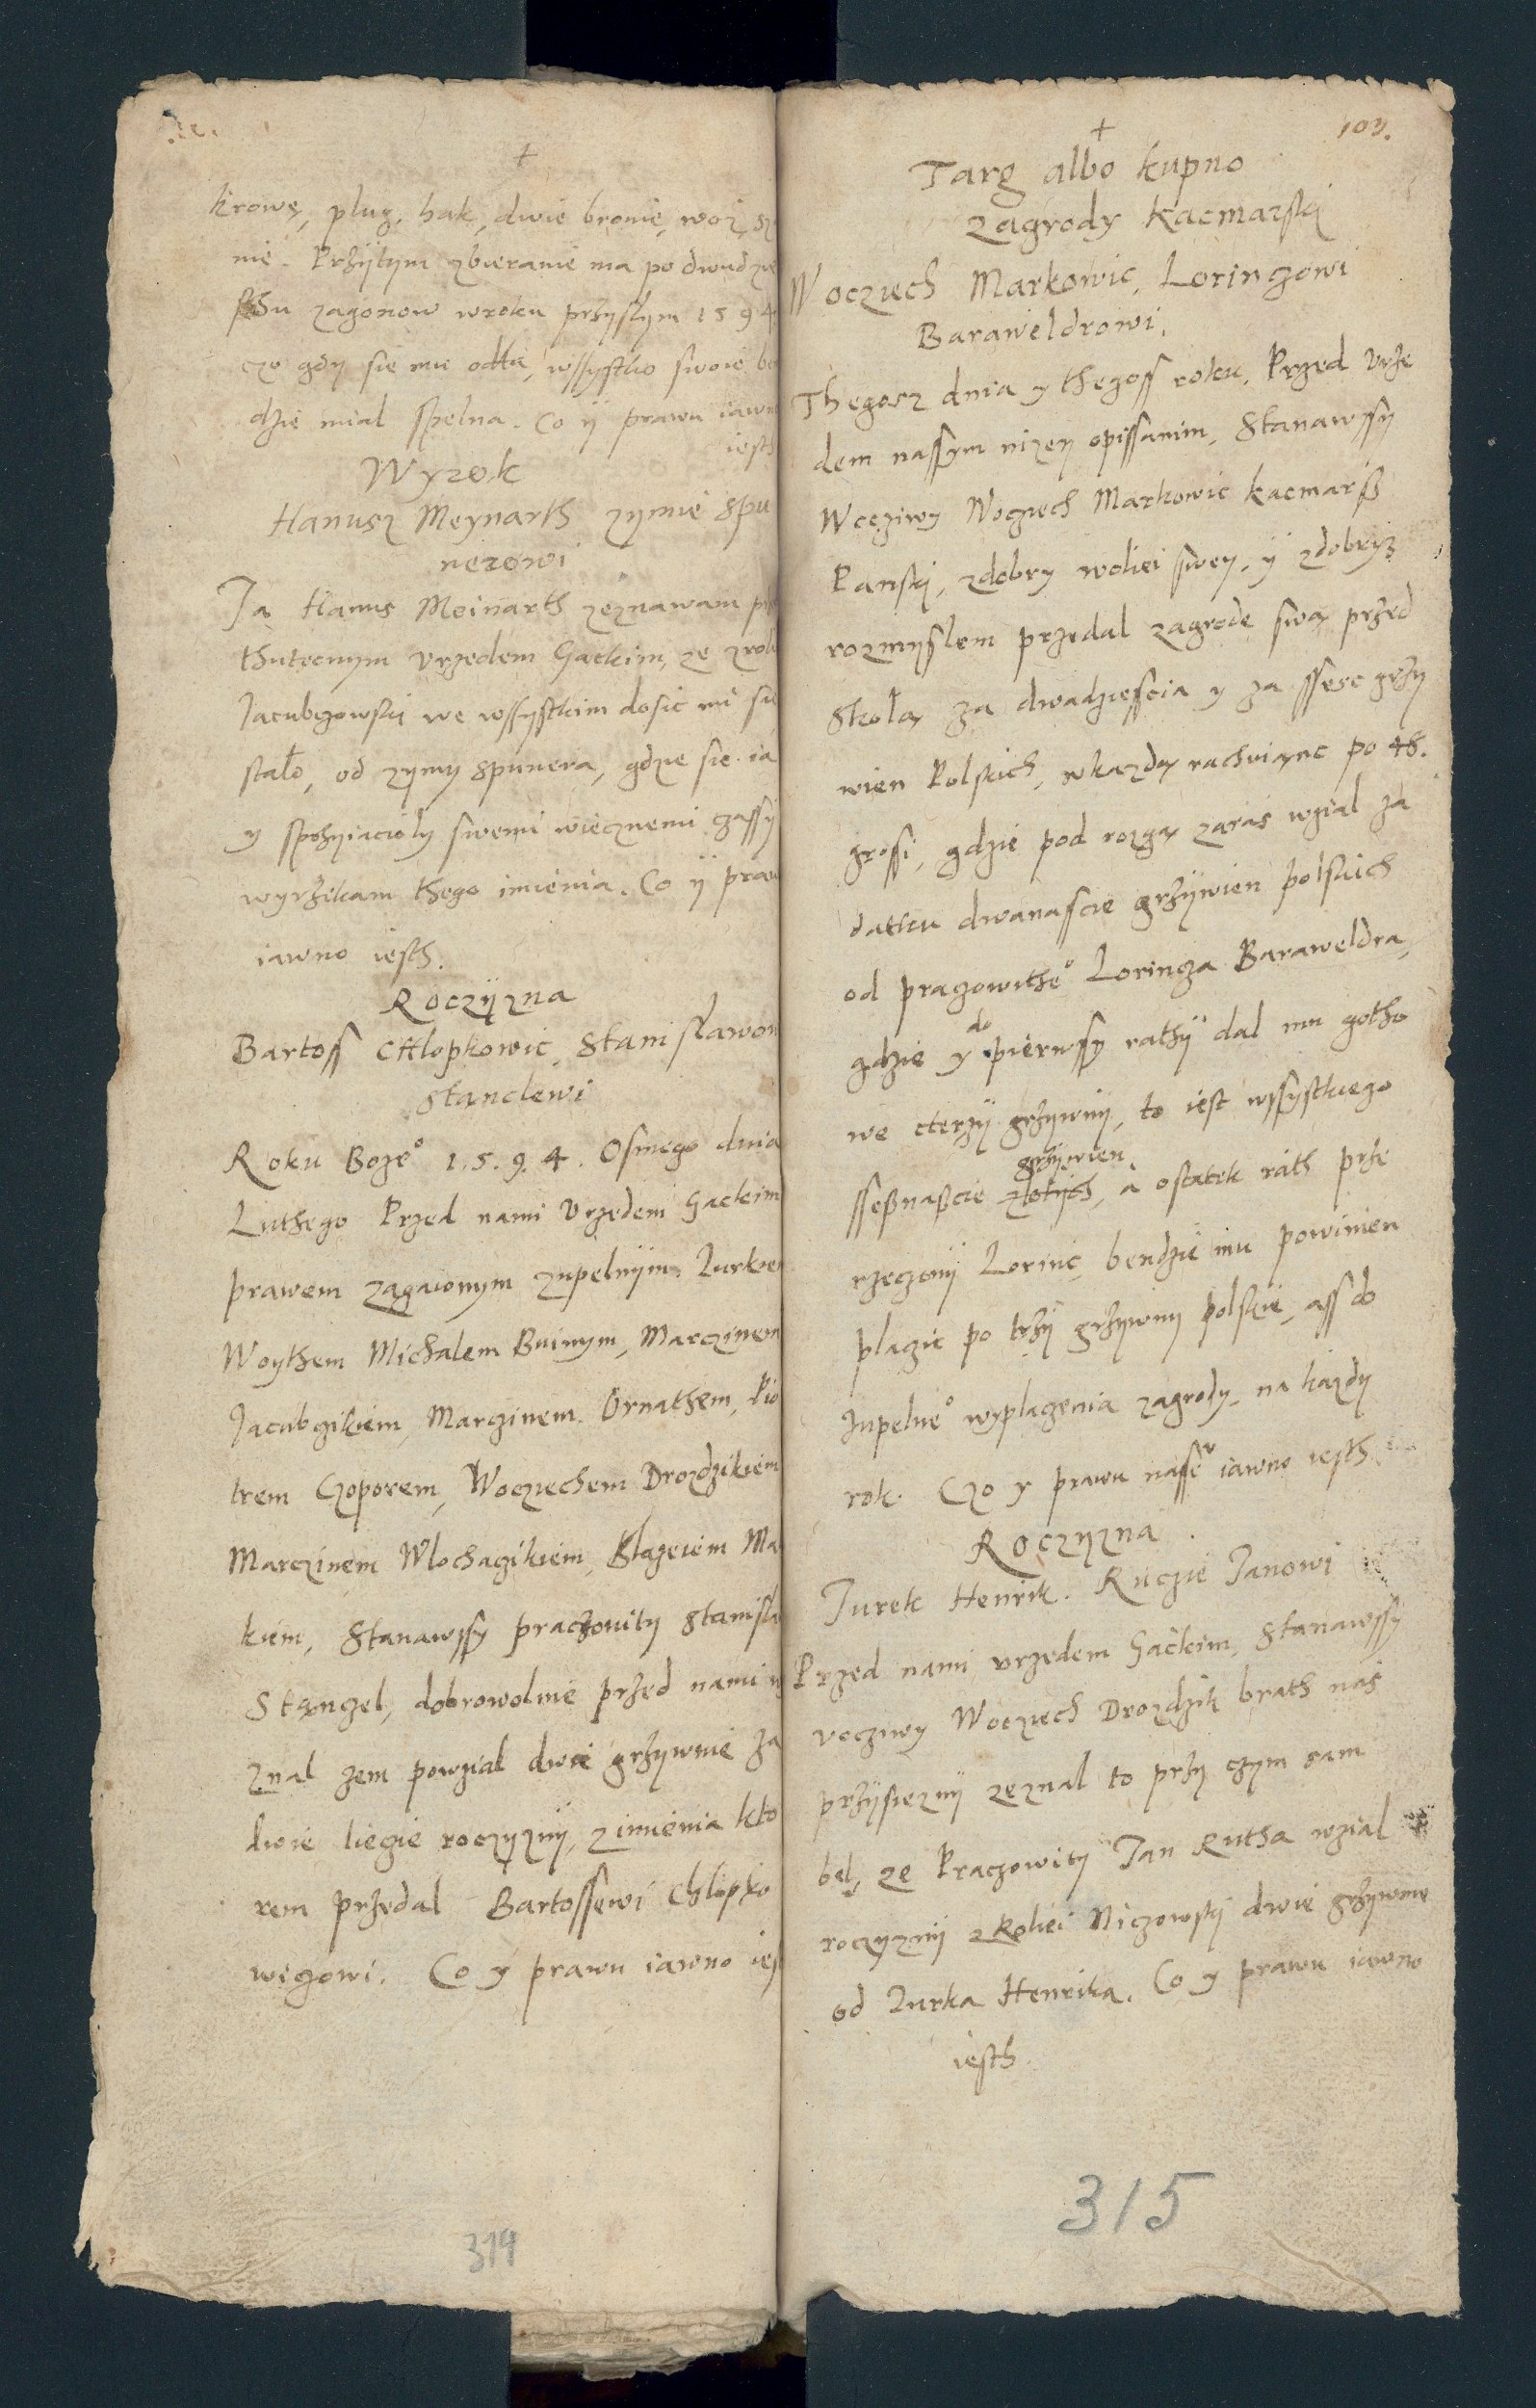 +
krowę, plug, hak, dwie bronie, woz, sz
nie. Przÿtym zbieranie ma po dwudzie
stu zagonow wroku przyslym 1594
czo gdy sie mu odda, wssystko swoie be
dzie mial spelna. Co ÿ prawu iawno
iesth
Wyrok
Hanusz Meynarth zymie Spu
nerowi
Ja Hanus Meinarth zeznawam prz
thutecnym vrzedem Gackim, ze zroli
Jacubczowski we wssystkim dosic mi sie
stało, od zymy Spunera, gdze sie ia
y sprzyiacioly swemi wiecznemi czassy
wyrzikam thego imienia. Co ÿ prawu
iawno iesth.
Roczÿzna
Bartoss Chlopkowic Stanislawowi
Stanclewi
Roku Boże° 1.5.9.4. Osmego dnia
Luthego Przed nami Vrzedem Gackim
prawem zagaionym zupelnÿm. Jurkiem
Woythem Michalem Buinym, Marczinem
Jacubczikiem, Marczinem Ornathem, Pio
trem Czoporem, Woczechem Drozdzikiem
Marczinem Wlochaczikiem, Blazeiem Ma
kiem, Stanawssy praczowity Stanisla
Stanczel, dobrowolnie przed nami wy
znal zem powzial dwie grzywnie za
dwie liecie roczyznÿ, z imienia kto
rem przedal Bartossewi Chlopko
wiczowi. Co y prawu iawno iest
314
103.
+
Targ albo kupno
zagrody Kacmarski
Wocziech Markowic, Lorinczowi
Baraweldrowi.
Thegosz dnia y thegoss roku, Przed Vrze
dem nassym nizey opissanim, Stanawssy
Wccziwy Wocziech Markowic kacmarss
Panski, zdobry woliei swey, ÿ zdobrÿm
rozmyslem przedal zagrode swą przed
Skołą za dwadziescia y za ssesc grzy
wien Polskich, wkazdą rachuiąnc po 48.
grossi, gdzie pod rozgą zaras wzial za
datku dwanascie grzÿwien polskich
od praczowithe° Lorincza Baraweldra,
gdzie y do pierwssy rathÿ dal mu gotho
we cterzÿ grzywnÿ, to iest wssystkiego
ssesnascie złotÿch grzÿwien, a ostatek rath prze
rzeczonÿ Lorinc bendzie mu powinien
placzic po trzÿ grzÿwny polskie, ass do
zupelne° wyplaczenia zagrody, na kazdy
rok. Czo y prawu nasse° iawno iesth.
Roczyzna
Jurek Henrik. Ruczie Janowi
Przed nami vrzedem Gackim, Stanawssy
vcczywy Woczech Drozdzik brath nas
przÿsieznÿ zeznal to przy czym sam
bel, ze Praczowity Jan Rutha wzial
roczyznÿ z koliei Niczowskÿ dwie grzÿwnie
od Jurka Henrika. Co y prawu iawno
iesth.
315